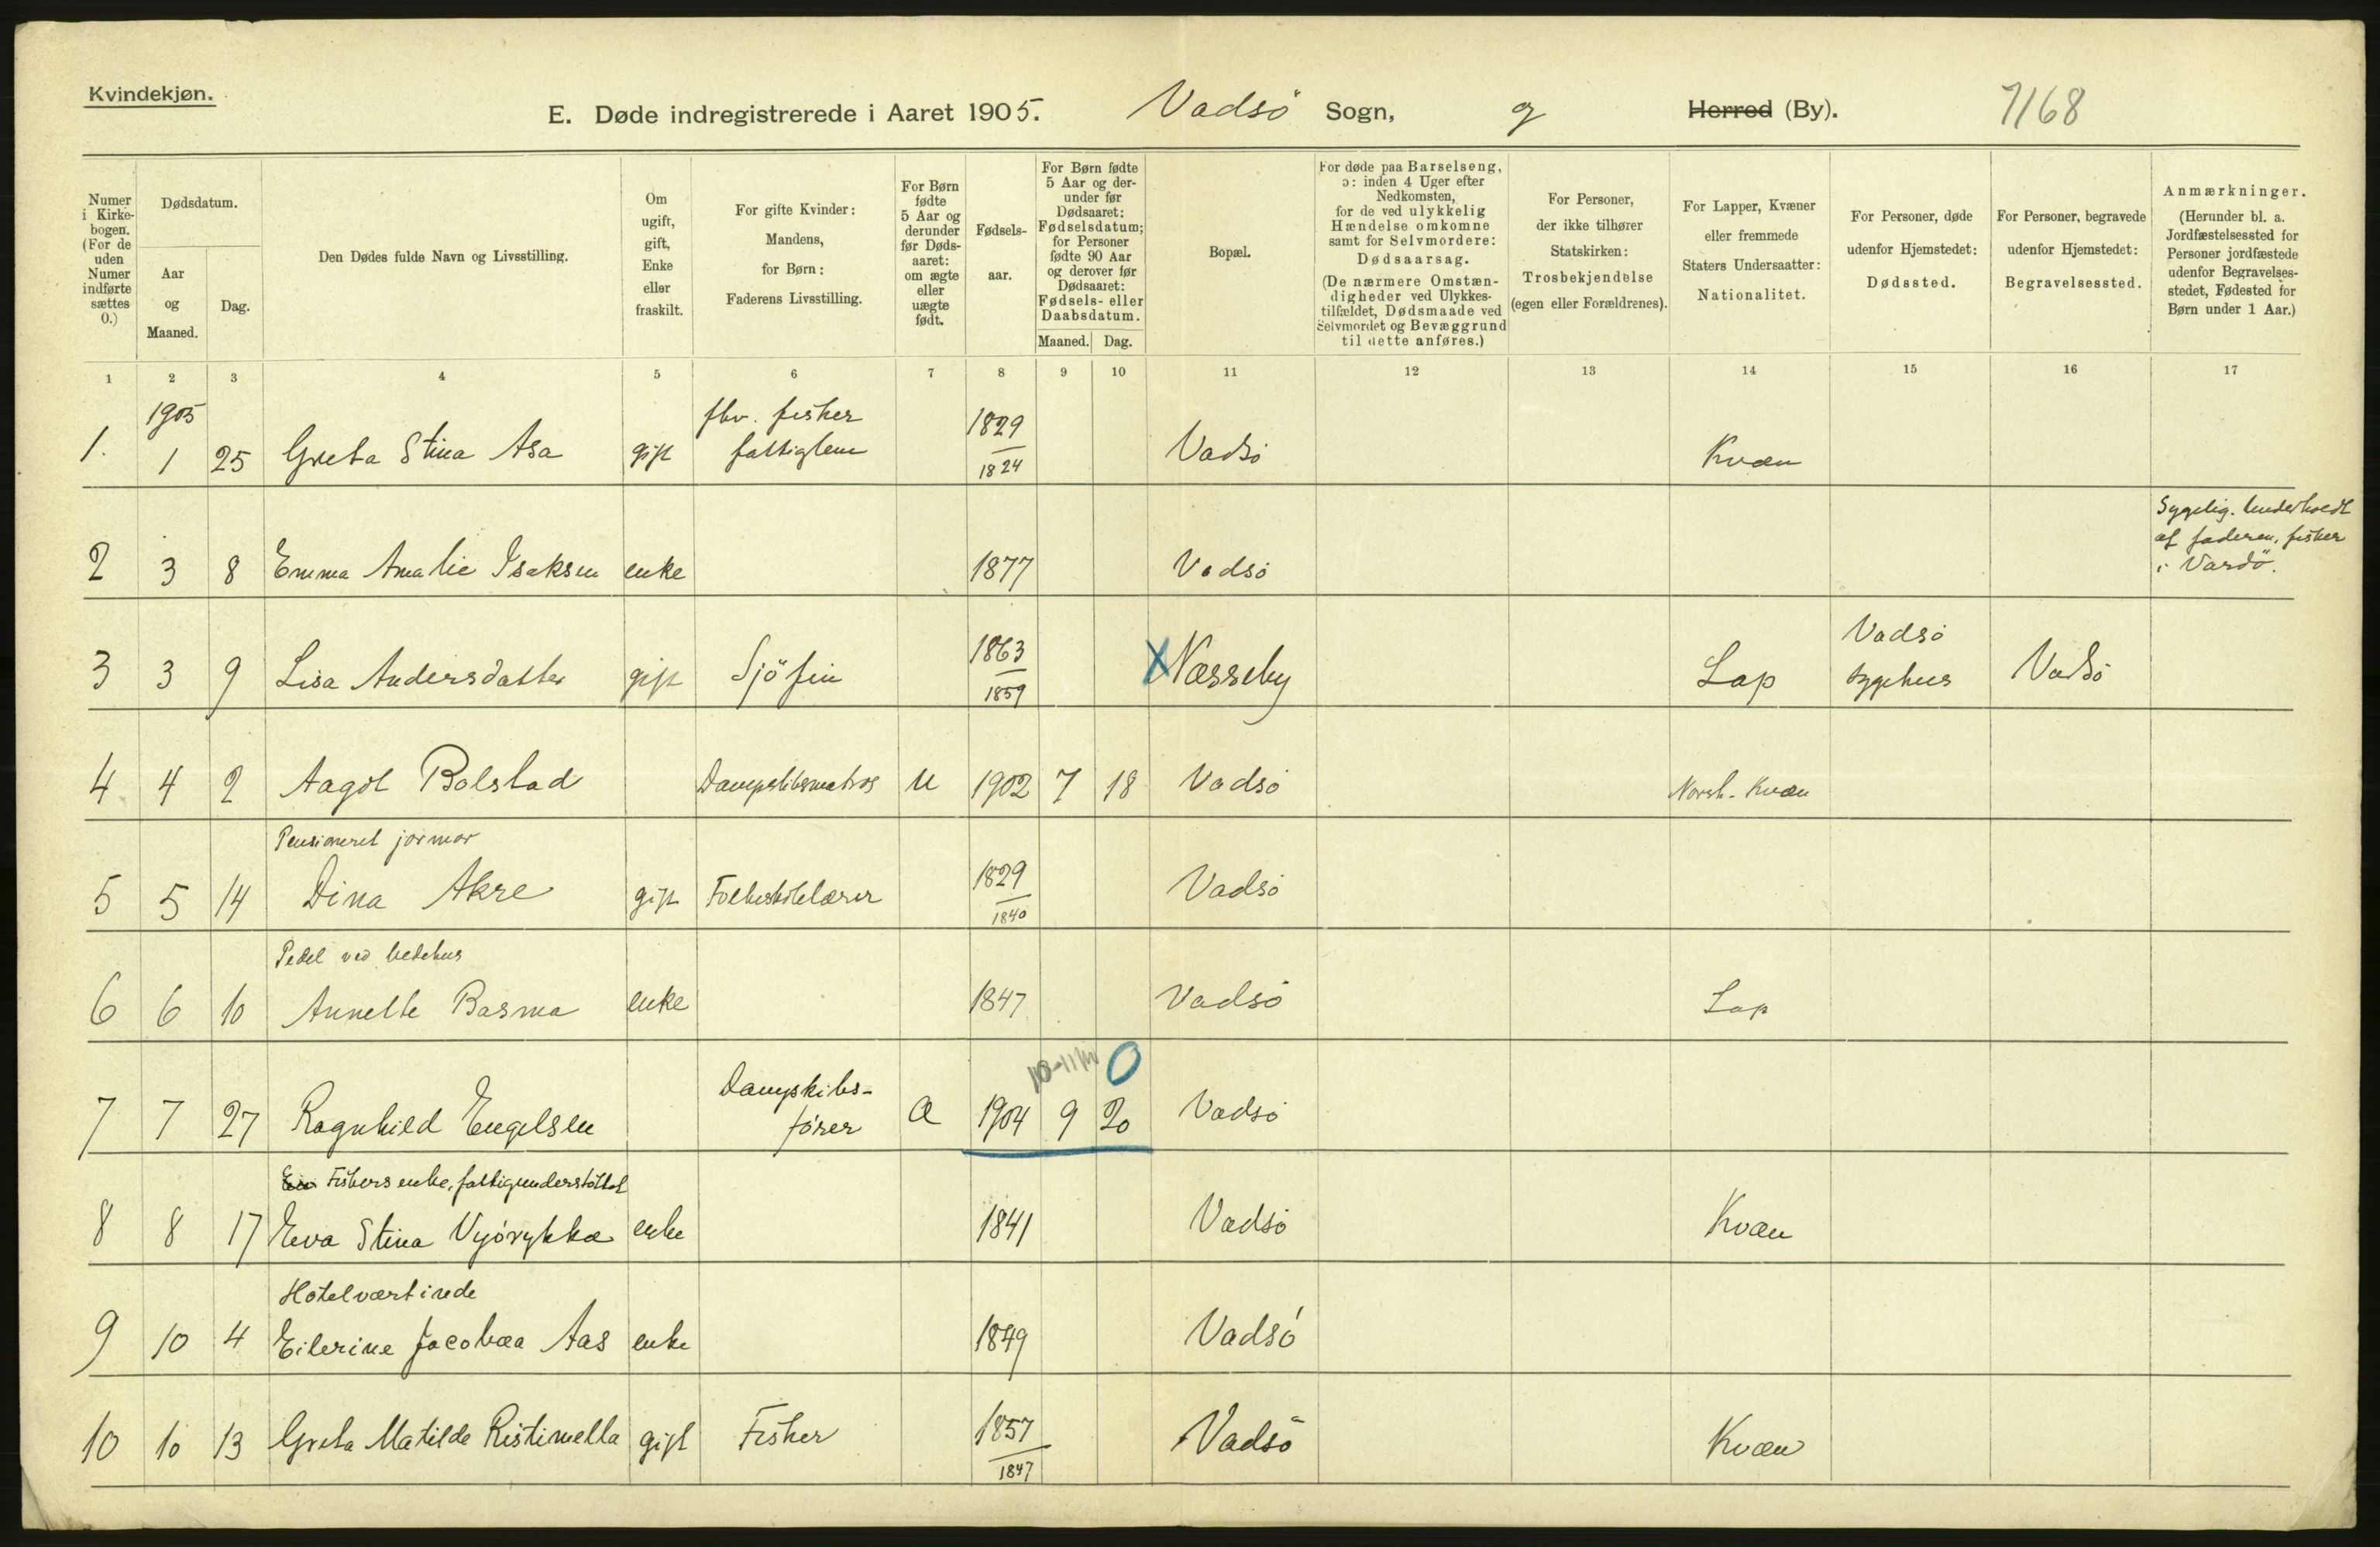 Kvindekjøn.
E. Døde indregistrerede i Aaret 1905. Vadsö Sogn, Herred (By). 7168
Numer i Kirkebogen. (For de uden Numer indførte sættes 0.)
Dødsdatum.
Aar og Maaned.
Dag.
Den Dødes fulde Navn og Livsstilling.
Om ugift, gift, Enke eller fraskilt.
For gifte Kvinder: Mandens, for Børn: Faderens Livsstilling.
For Børn fødte 5 Aar og derunder før Dødsaaret: om ægte eller uægte født.
Fødselsaar.
For Børn fødte 5 Aar og derunder før Dødsaaret: Fødselsdatum; for Personer fødte 90 Aar og derover før Dødsaaret: Fødsels- eller Daabsdatum.
Maaned. Dag.
Bopæl.
For døde paa Barselseng, ɔ: inden 4 Uger efter Nedkomsten, for de ved ulykkelig Hændelse omkomne samt for Selvmordere: Dødsaarsag. (De nærmere Omstændigheder ved Ulykkestilfældet, Dødsmaade ved Selvmordet og Bevæggrund til dette anføres.)
For Personer, der ikke tilhører Statskirken: Trosbekjendelse (egen eller Forældrenes).
For Lapper, Kvæner eller fremmede Staters Undersaatter: Nationalitet.
For Personer, døde udenfor Hjemstedet: Dødssted.
For Personer, begravede udenfor Hjemstedet: Begravelsessted.
Anmærkninger. (Herunder bl. a. Jordfæstelsessted for Personer jordfæstede udenfor Begravelsesstedet, Fødested for Børn under 1 Aar.)
1 2 3 4 5 6 7 8 9 10 11 12 13 14 15 16 17
1905 fhv. fisker 1829
1. 1 25 Greta Stina Asa gift fattiglem 1824 Vadsö Kvæn
Sygelig. Underholdt
af faderen, fisker
2 3 8 Emma Amalie Isaksen enke 1877 Vadsö i Vardö.
1863 Vadsö
3 3 9 Lisa Andersdatter gift Sjöfin 1859 X Næsseby Lap sygehus Vadsö
4 4 2 Aagot Bolstad Dampskibsmatros U 1902 7 18 Vadsö Norsk-Kvæn
Pensioneret jormor
5 5 14 Dina Akre gift Folkeskolelærer 1829 1840 Vadsö
Pedel ved bedehus
6 6 10 Annette Basma enke 1847 Vadsö Lap
Dampskibs- 10-11 0
7 7 27 Ragnhild Engelsen fører Æ 1904 9 20 Vadsö
Fiskers enke, fattigunderstöttet
8 8 17 Eeva Stina Vyörykkæ enke 1841 Vadsö Kvæn
Hotelværtinde
9 10 4 Eilerine Jacobæa Aas enke 1849 Vadsö
10 10 13 Greta Matilde Ristimella gift Fisker 1857 1847 Vadsö Kvæn